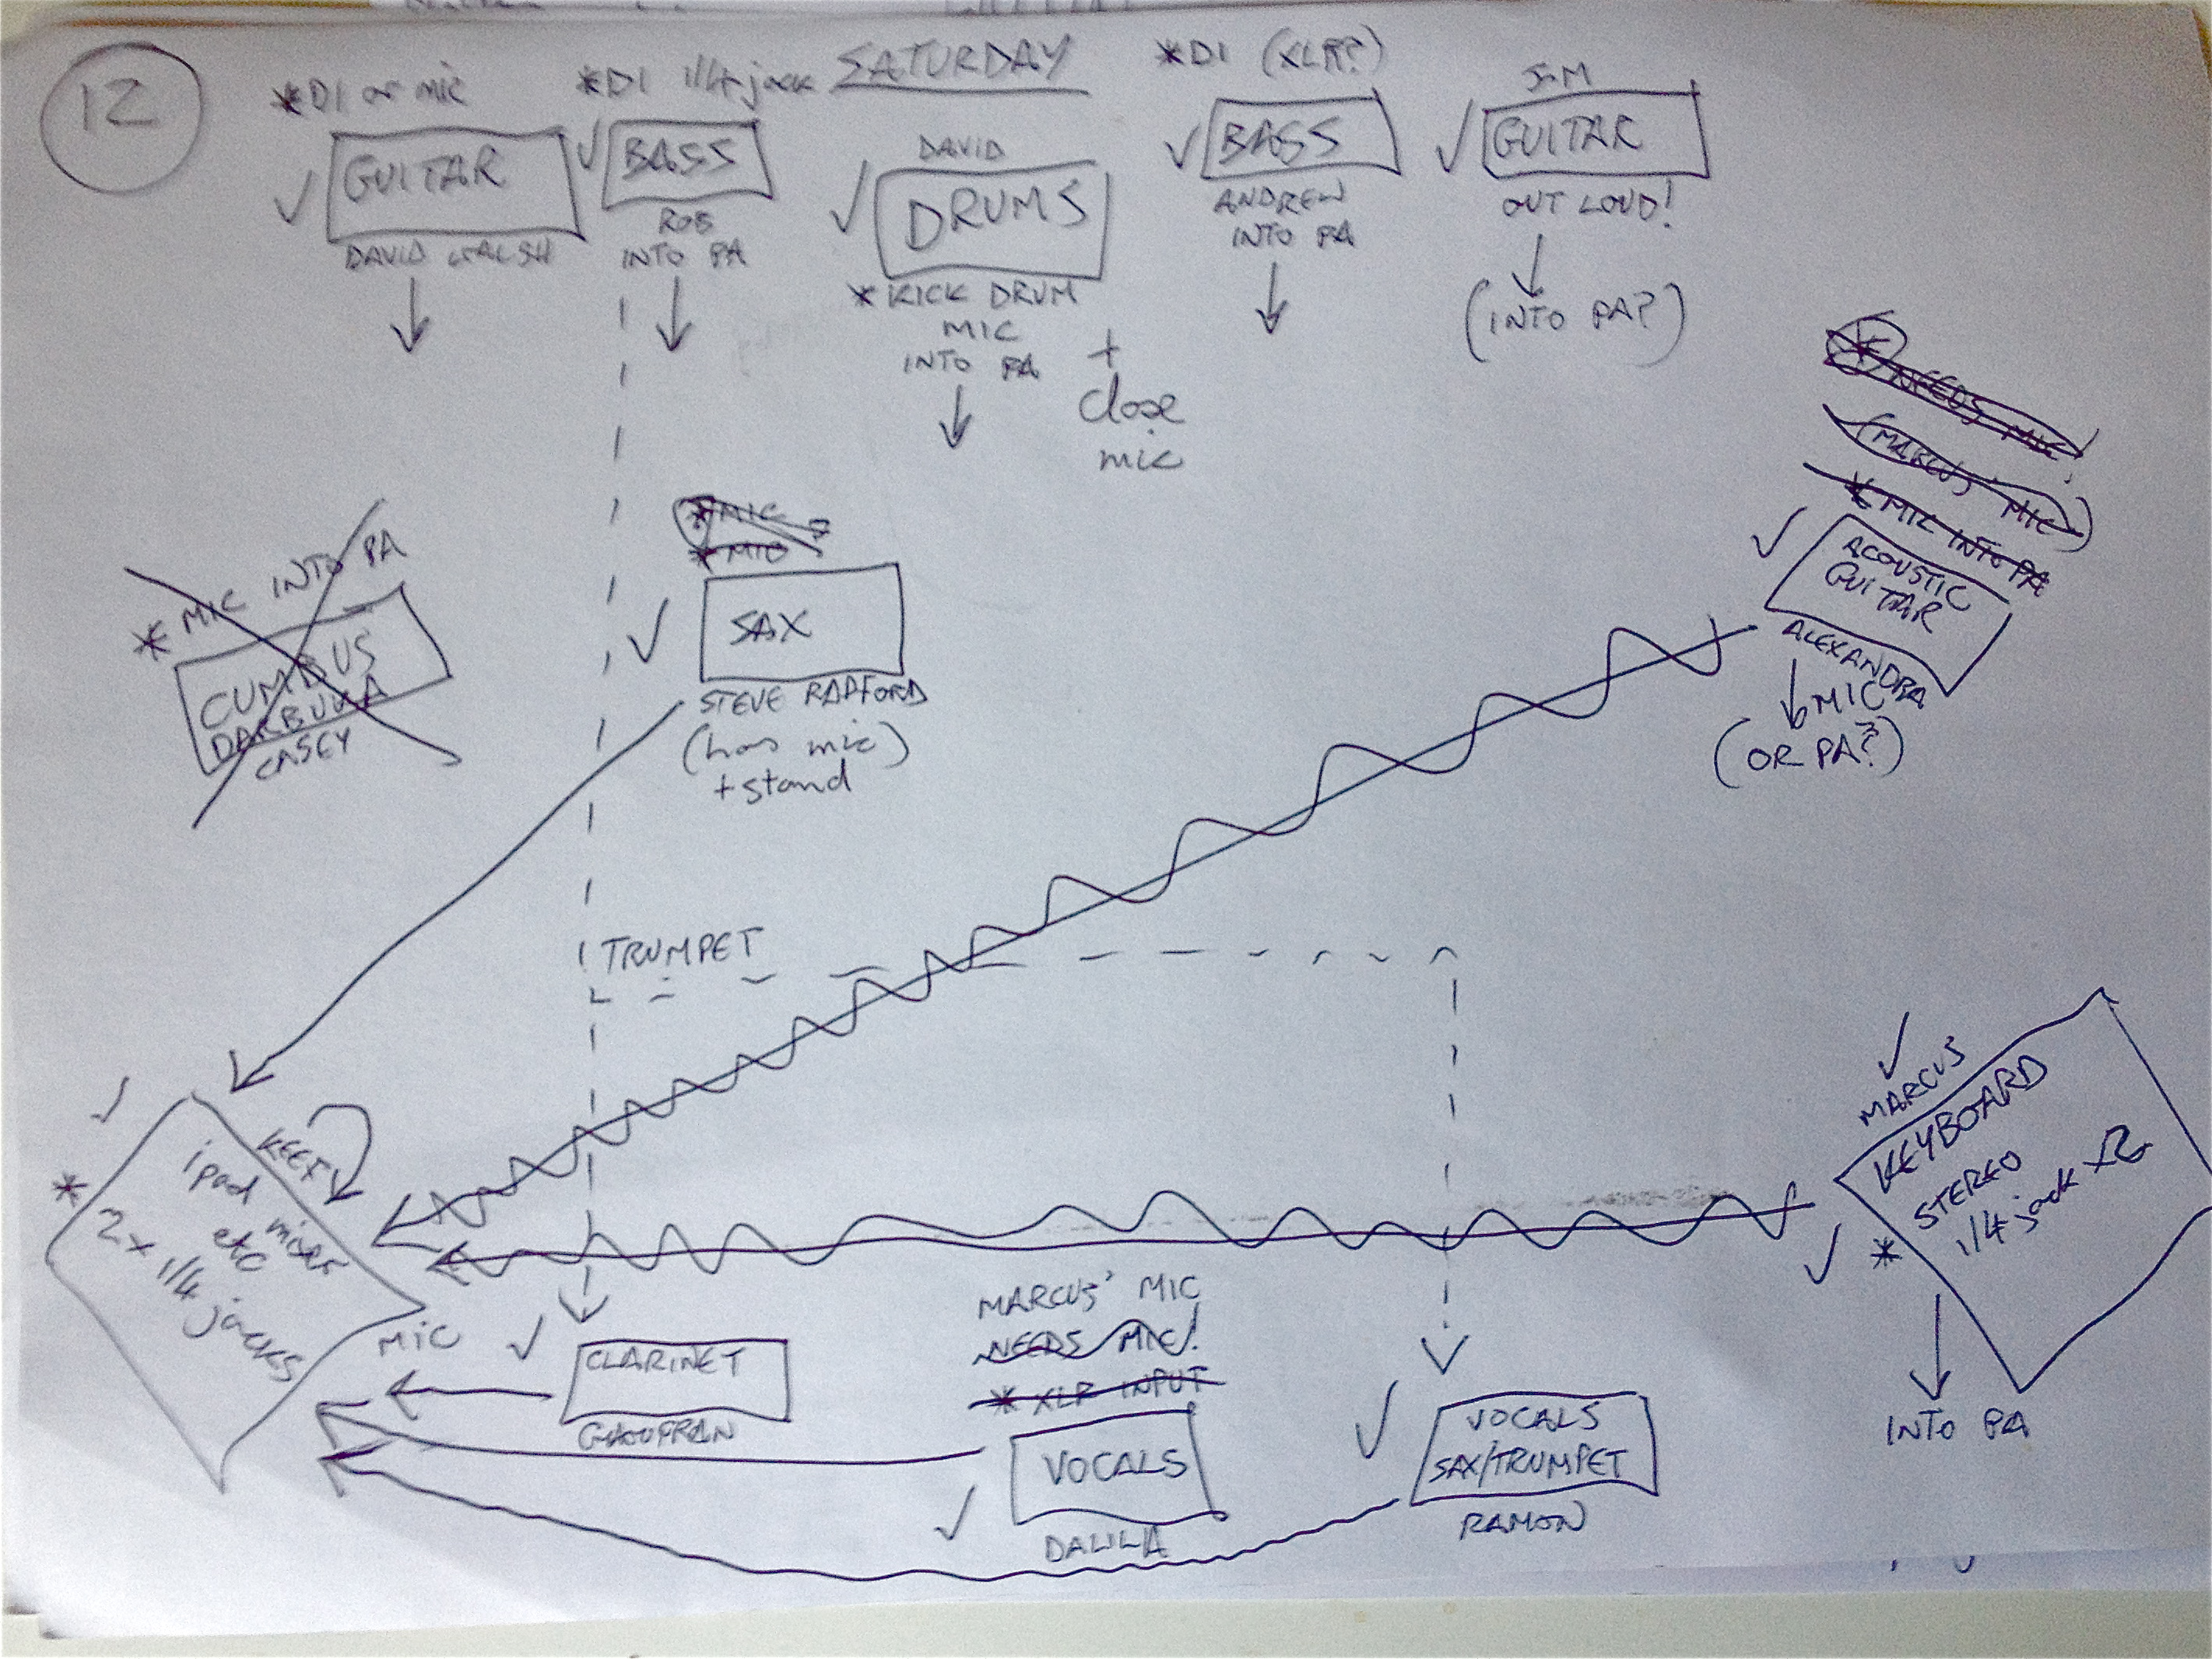 12
SATURDAY
*DI or mic
GUITAR
DAVID WALSH
*DI 1/4 jack
BASS
ROB
INTO PA
DAVID
DRUMS
*KICK DRUM
MIC
INTO PA
+
close
mic
*DI (XLR?)
BASS
ANDREW
INTO PA
SAM
GUITAR
OUT LOUD!
(INTO PA?)
* NEEDS MIC!
(MARCUS' MIC)
*MIC INTO PA
ACOUSTIC
GUITAR
ALEXANDRA
MIC
(OR PA?)
* MIC INTO PA
CUMBUS
DARBUKA
CASEY
*MIC
*MIC
SAX
STEVE RADFORD
(has mic)
+stand
TRUMPET
KEEF
ipad mixer
etc
* 2x 1/4 jacks
MARCUS
KEYBOARD
* STEREO
1/4 jack x2
INTO PA
MIC
CLARINET
GHOUFRAN
MARCUS' MIC
NEEDS MIC!
* XLR INPUT
VOCALS
DALILA
VOCALS
SAX/TRUMPET
RAMON